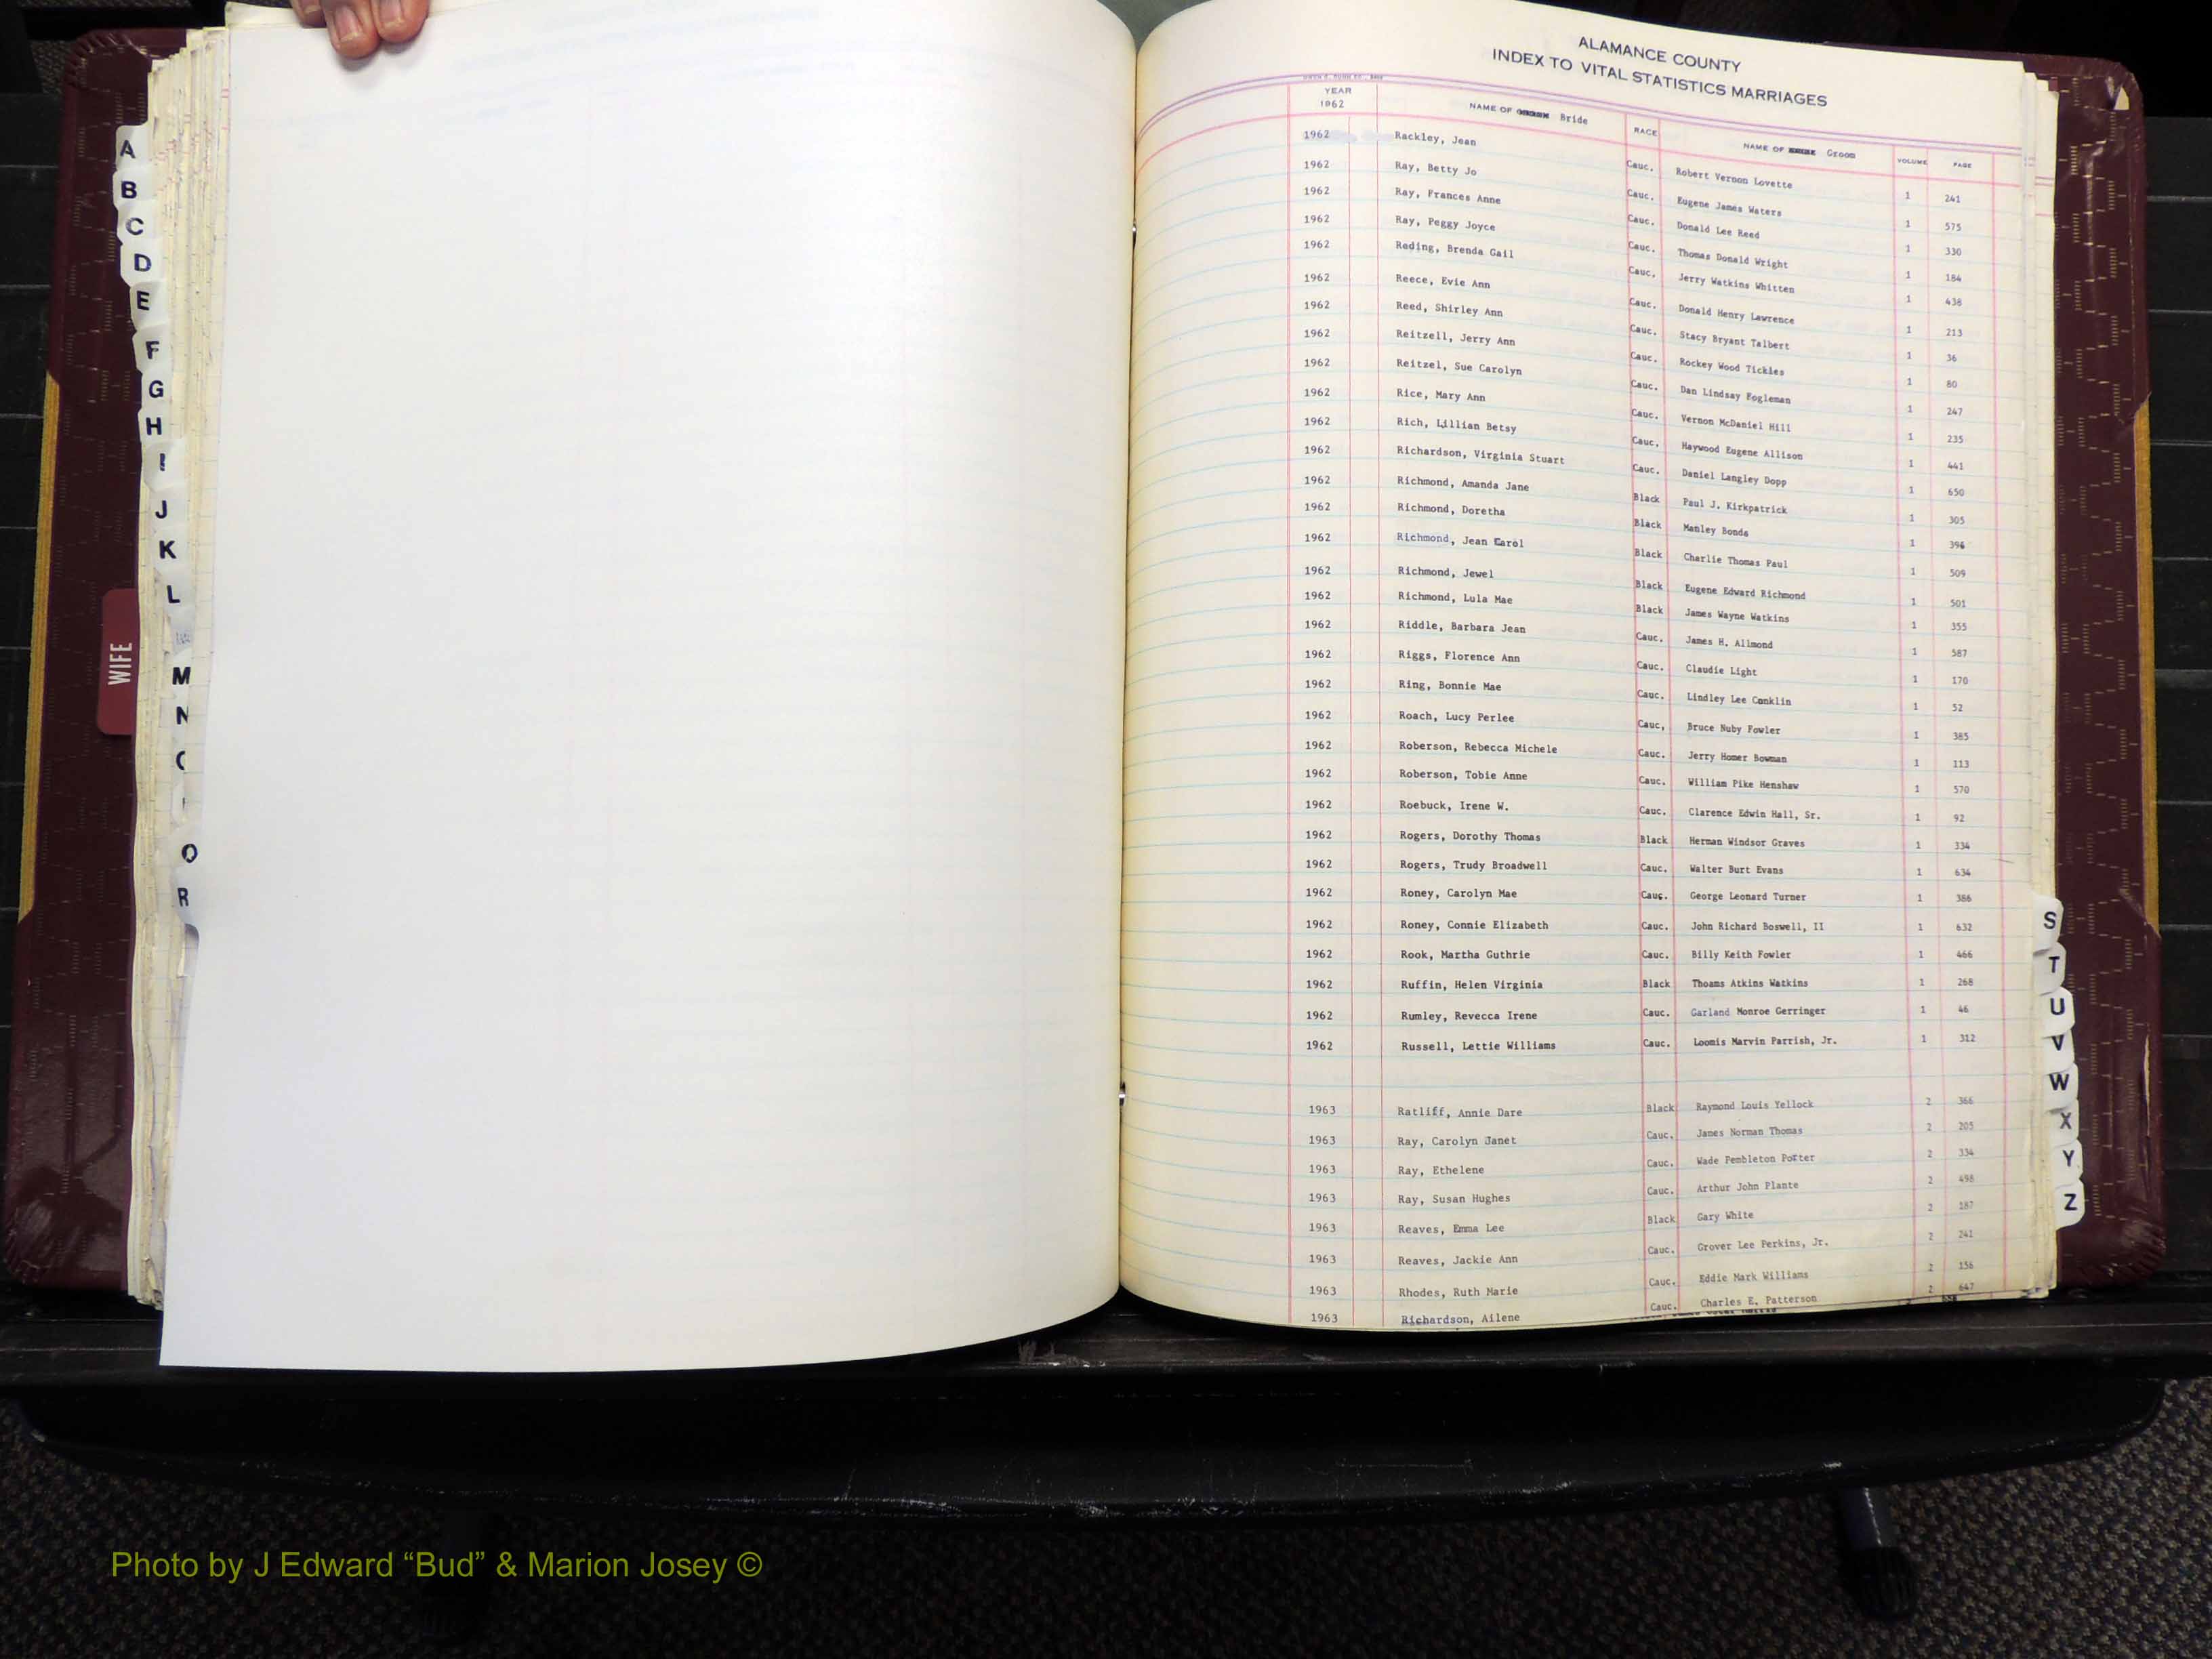 ALAMANCE COUNTY
INDEX TO VITAL STATISTICS MARRIAGES
YEAR 1962 NAME OF Bride RACE NAME OF Groom VOLUME PAGE
1962 Rackley, Jean Cauc. Robert Vernon Lovette 1 241
1962 Ray, Betty Jo Cauc. Eugene James Waters 1 575
1962 Ray, Frances Anne Cauc. Donald Lee Reed 1 330
1962 Ray, Peggy Joyce Cauc. Thomas Donald Wright 1 184
1962 Reding, Brenda Gail Cauc. Jerry Watkins Whitten 1 438
1962 Reece, Evie Ann Cauc. Donald Henry Lawrence 1 213
1962 Reed, Shirley Ann Cauc. Stacy Bryant Talbert 1 36
1962 Reitzell, Jerry Ann Cauc. Rockey Wood Tickles 1 80
1962 Reitzel, Sue Carolyn Cauc. Dan Lindsay Fogleman 1 247
1962 Rice, Mary Ann Cauc. Vernon McDaniel Hill 1 235
1962 Rich, Lillian Betsy Cauc. Haywood Eugene Allison 1 441
1962 Richardson, Virginia Stuart Cauc. Daniel Langley Dopp 1 650
1962 Richmond, Amanda Jane Black Paul J. Kirkpatrick 1 305
1962 Richmond, Doretha Black Manley Bonds 1
1962 Richmond, Jean Carol Black Charlie Thomas Paul 1 509
1962 Richmond, Jewel Black Eugene Edward Richmond 1 501
1962 Richmond, Lula Mae Black James Wayne Watkins 1 355
1962 Riddle, Barbara Jean Cauc. James H. Allmond 1 587
1962 Riggs, Florence Ann Cauc. Claudie Light 1 170
1962 Ring, Bonnie Mae Cauc. Lindley Lee Conklin 1 52
1962 Roach, Lucy Perlee Cauc, Bruce Nuby Fowler 1 385
1962 Roberson, Rebecca Michele Cauc. Jerry Homer Bowman 1 113
1962 Roberson, Tobie Anne Cauc. William Pike Henshaw 1 570
1962 Roebuck, Irene W. Cauc. Clarence Edwin Hall, Sr. 1 92
1962 Rogers, Dorothy Thomas Black Herman Windsor Graves 1 334
1962 Rogers, Trudy Broadwell Cauc. Walter Burt Evans 1 634
1962 Roney, Carolyn Mae Cauc. George Leonard Turner 1 386
1962 Roney, Connie Elizabeth Cauc. John Richard Boswell, II 1 632
1962 Rook, Martha Guthrie Cauc. Billy Keith Fowler 1 466
1962 Ruffin, Helen Virginia Black Thoams Atkins Watkins 1 268
1962 Rumley, Revecca Irene Cauc. Garland Monroe Gerringer 1 46
1962 Russell, Lettie Williams Cauc. Loomis Marvin Parrish, Jr. 1 312
1963 Ratliff, Annie Dare Black Raymond Louis Yellock 2 366
1963 Ray, Carolyn Janet Cauc. James Norman Thomas 2 205
1963 Ray, Ethelene Cauc. Wade Pembleton Porter 2 334
1963 Ray, Susan Hughes Cauc. Arthur John Plante 2 498
1963 Reaves, Emma Lee Black Gary White 2 187
1963 Reaves, Jackie Ann Cauc. Grover Lee Perkins, Jr. 2 241
1963 Rhodes, Ruth Marie Cauc. Eddie Mark Williams 2 156
1963 Richardson, Ailene Cauc. Charles E. Patterson 2 647
A
B
C
D
E
F
G
H
I
J
K
L
M
N
O
R
WIFE
S
T
U
V
W
X
Y
Z
Photo by J Edward “Bud” & Marion Josey ©